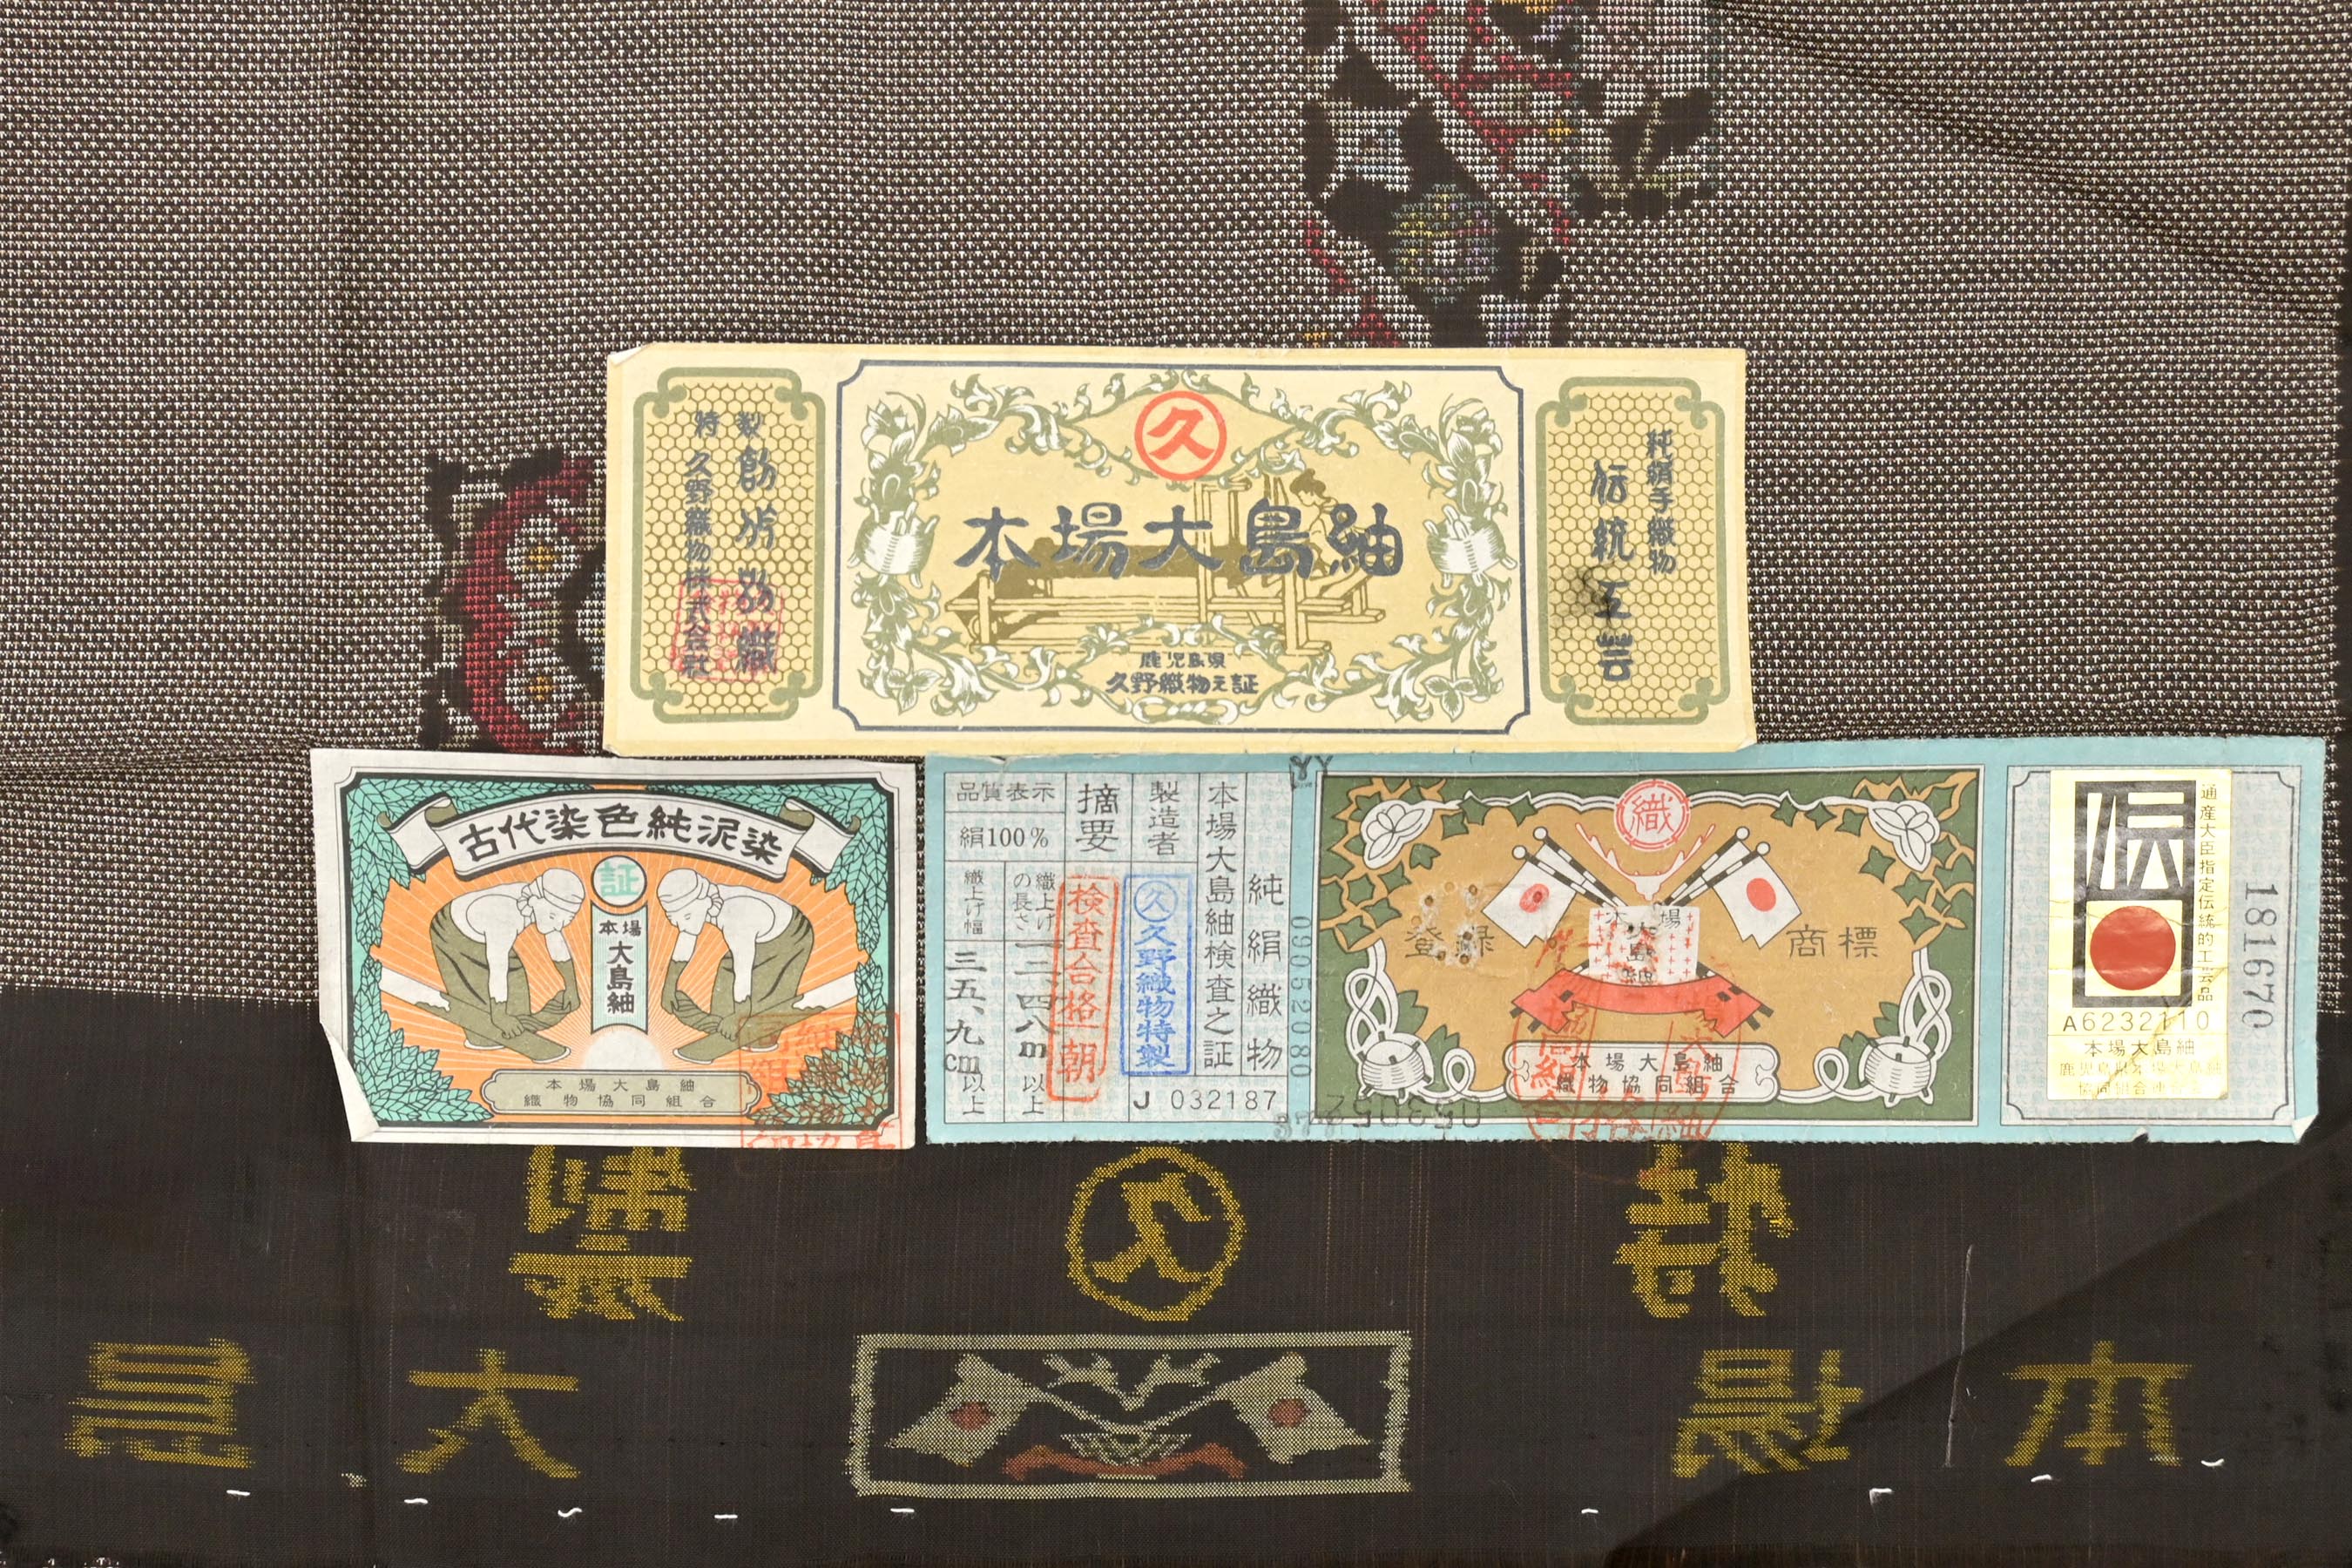 久
本場大島紬
鹿児島県
久野織物之証
純絹手織物
伝統工芸
特製
久野織物株式会社
古代染色純泥染
証
本場
大島紬
本場大島紬
織物協同組合
純絹織物
本場大島紬検査之証
製造者
久 久野織物特製
J 032187
摘要
検査合格
品質表示
絹100%
織上げの長さ
一二、四八m以上
織上げ幅
三五、九cm以上
09052080
織
登録
商標
本場
大島紬
本場大島紬
織物協同組合
053052
伝
通産大臣指定伝統的工芸品
A6232110
本場大島紬
鹿児島県本場大島紬
協同組合連合会
181670
久
本場
大島